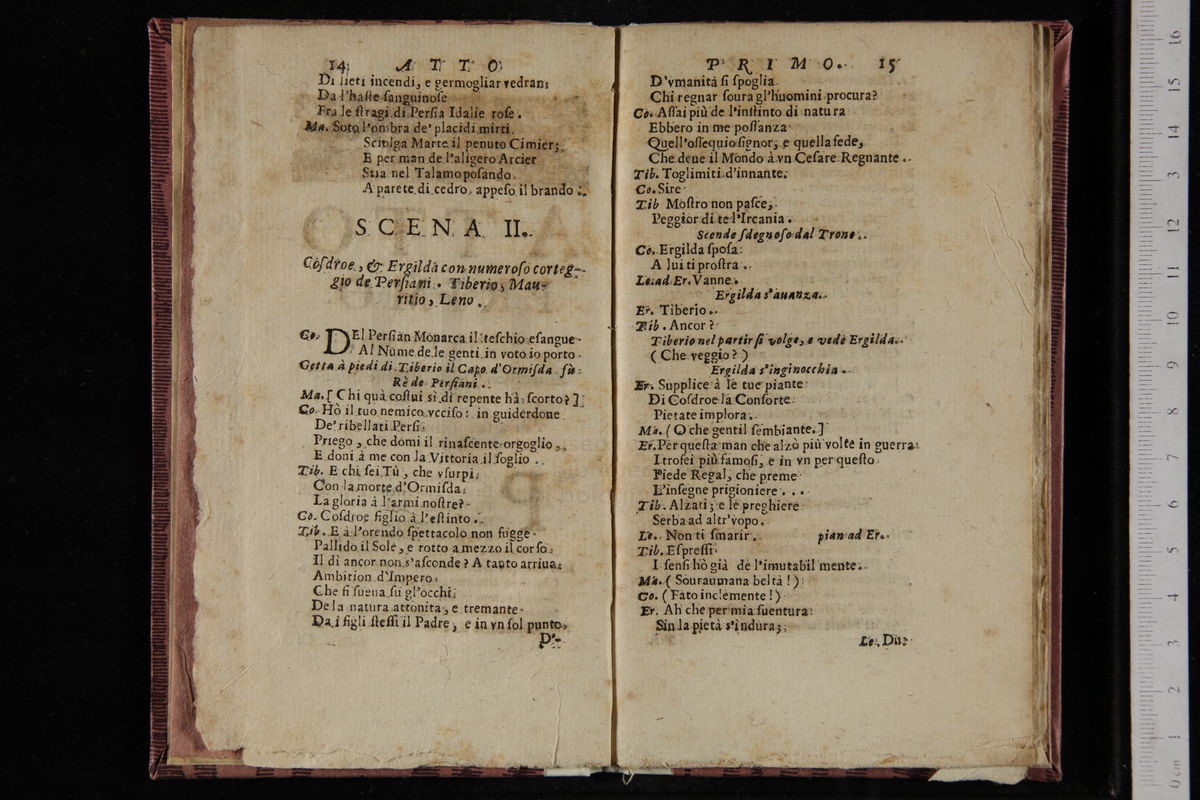 14 ATTO
Di lieti incendi, e germogliar vedran
Da l'haſte ſanguinoſe
Fra le ſtragi di Perſia Idalie roſe.
Ma. Soto l'ombra de' placidi mirti
Sciolga Marte il penuto Cimier;
E per man de l'aligero Arcier
Stia nel Talamo poſando
A parete di cedro, appeſo il brando.
SCENA II.
Coſdroe, & Ergilda con numeroſo corteg-
gio de Perſiani. Tiberio, Mau-
ritio, Leno.
Co. DEl Perſian Monarca il teſchio eſangue
Al Nume de le genti in voto io porto
Getta à piedi di Tiberio il Capo d'Ormiſda fù
Rè de Perſiani.
Ma. [Chi quà coſtui sì di repente hà ſcorto?]
Co. Hò il tuo nemico vcciſo: in guiderdone
De' ribellati Perſi
Priego, che domi il rinaſcente orgoglio,
E doni à me con la Vittoria il ſoglio.
Tib. E chi ſei Tù, che vſurpi
Con la morte d'Ormiſda
La gloria à l'armi noſtre?
Co. Coſdroe figlio à l'eſtinto.
Tib. E à l'orendo ſpettacolo non fugge
Pallido il Sole, e rotto a mezzo il corſo
Il dì ancor non s'aſconde? A tanto arriua
Ambition d'Impero
Che ſi ſuena ſu gl'occhi
De la natura attonita, e tremante
Da i figli ſteſſi il Padre, e in vn ſol punto
D'-
PRIMO. 15
D'vmanità ſi ſpoglia
Chi regnar ſoura gl'huomini procura?
Co. Aſſai più de l'inſtinto di natura
Ebbero in me poſſanza
Quell'oſſequio ſignor, e quella fede,
Che deue il Mondo à vn Ceſare Regnante.
Tib. Toglimiti d'innante.
Co. Sire
Tib Moſtro non paſce,
Peggior di te l'Ircania.
Scende ſdegnoſo dal Trono.
Co. Ergilda ſpoſa
A lui ti proſtra.
Le. ad Er. Vanne.
Ergilda s'auanza.
Er. Tiberio.
Tib. Ancor?
Tiberio nel partir ſi volge, e vede Ergilda.
(Che veggio?)
Ergilda s'inginocchia.
Er. Supplice à le tue piante
Di Coſdroe la Conſorte
Pietate implora.
Ma. (O che gentil ſembiante.]
Er. Per queſta man che alzò più volte in guerra
I trofei più famoſi, e in vn per queſto
Piede Regal, che preme
L'inſegne prigioniere...
Tib. Alzati; e le preghiere
Serba ad altr'vopo.
Le. Non ti ſmarir. pian ad Er.
Tib. Eſpreſſi
I ſenſi hò già de l'imutabil mente.
Ma. (Souraumana beltà!)
Co. (Fato inclemente!)
Er. Ah che per mia ſuentura
Sin la pietà s'indura;
Le. Du-